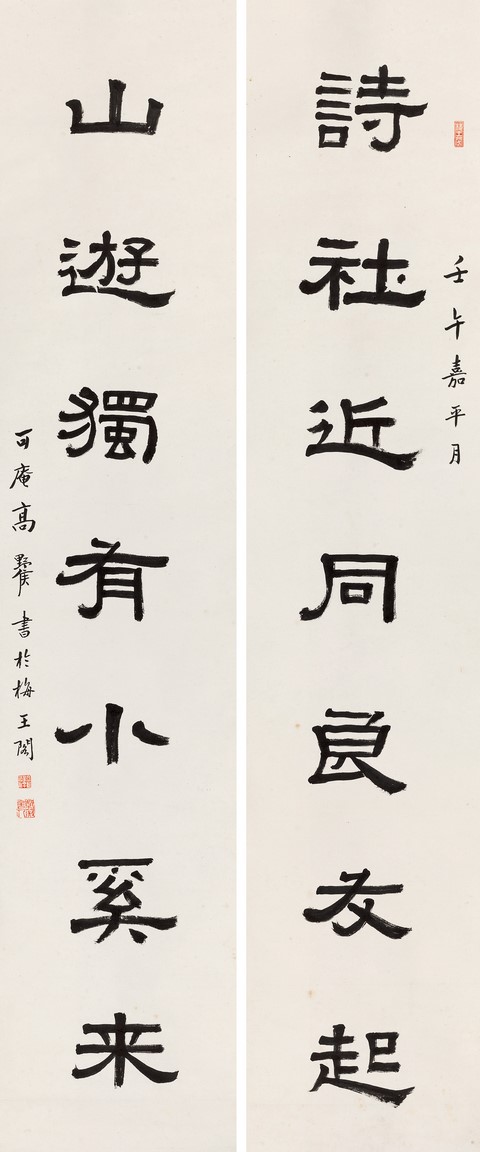 壬午嘉平月
詩社近同良友起
山遊獨有小奚来
可庵高野侯書於梅王閣